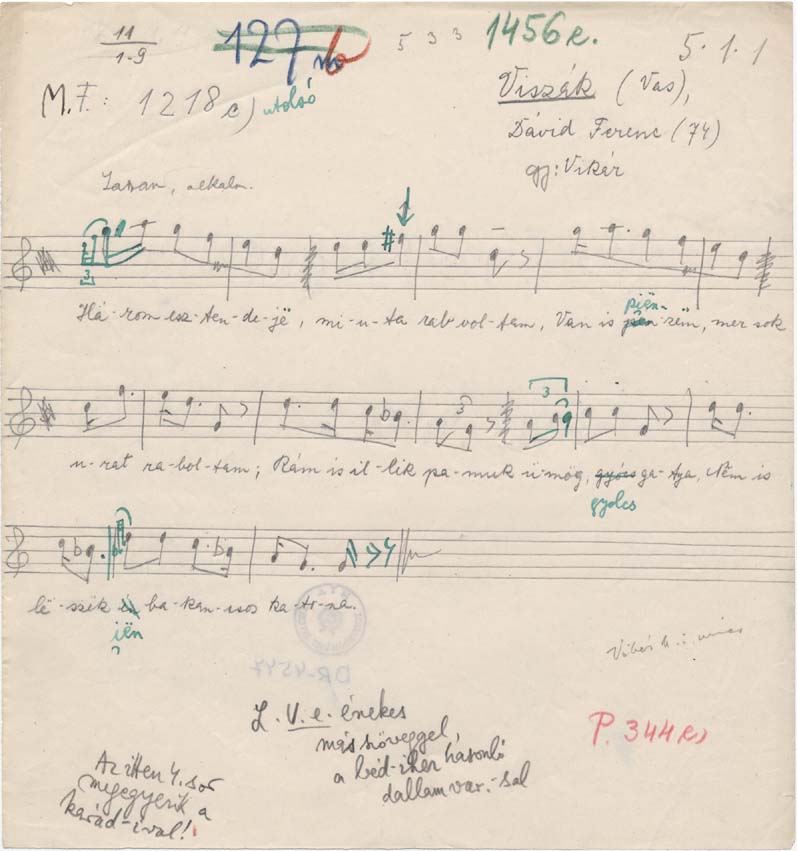 11
1-9
127
b
5 3 3
1456e.
5.1.1
M.F.: 1218c) utolsó
Viszák (Vas),
Dávid Ferenc (74)
gy: Vikár
3
Há-rom esz-ten-de-jë, mi-u-ta rab vol-tam, Van is pén-zëm, mer sok
piën-
3
3
u-rat ra-bol-tam; Rám is il-lik pa-muk ü-mög, gyócs ga-tya, Nëm is
gyolcs
lë-szëk én ba-kan-csos ka-to-na.
iën
?
DR-4547
L. V.e. énekes
más szöveggel,
a béd-ihez hasonló
dallamvar.-sal
P. 344
Az itten 4. sor
megegyezik a
karád-ival!